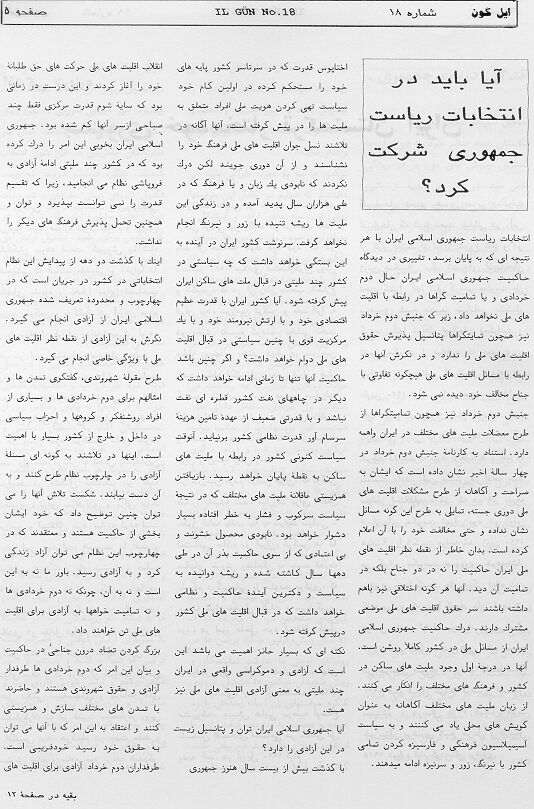 ایل گون شماره ۱۸ IL GÜN No.18 صفحه ۵
آیا باید در
انتخابات ریاست
جمهوری شرکت
کرد؟
انتخابات ریاست جمهوری اسلامی ایران با هر
نتیجه ای که به پایان برسد، تغییری در دیدگاه
حاکمیت جمهوری اسلامی ایران حال دوم
خردادی و یا تمامیت گراها در رابطه با اقلیت
های ملی نخواهد داد، زیر که جنبش دوم خرداد
نیز همچون تمامیتگراها پتانسیل پذیرش حقوق
اقلیت های ملی را ندارد و در نگرش آنها در
رابطه با مسائل اقلیت های ملی هیچگونه تفاوتی با
جناح مخالف خود دیده نمی شود.
جنبش دوم خرداد نیز همچون تمامیتگراها از
طرح معضلات ملیت های مختلف در ایران واهمه
دارد. استناد به کارنامۀ جنبش دوم خرداد در
چهار سالۀ اخیر نشان داده است که ایشان به
صراحت و آگاهانه از طرح مشکلات اقلیت های
ملی دوری جسته، تمایلی به طرح این گونه مسائل
نشان نداده و حتی مخالفت خود را با آن اعلام
کرده است. بدان خاطر از نقطه نظر اقلیت های
ملی ایران حاکمیت را نه در دو جناح بلکه در
تمامیت آن دید. آنها هر گونه اختلاقی نیز باهم
داشته باشند سر حقوق اقلیت های ملی موضعی
مشترک دارند. درک حاکمیت جمهوری اسلامی
ایران از مسائل ملی در کشور کاملا روشن است.
آنها در درجۀ اول وجود ملیت های ساکن در
کشور و فرهنگ های مختلف را انکار می کنند.
از زبان ملیت های مختلف آگاهانه به عنوان
گویش های محلی یاد می کنند و به سیاست
آسیمیلاسیون فرهنگی و فارسیزه کردن تمامی
کشور با نیرنگ، زور و سرنیزه ادامه میدهند.
اختاپوس قدرت که در سرتاسر کشور پایه های
خود را مستحکم کرده در اولین گام خود
سیاست تهی کردن هویت ملی افراد متعلق به
ملیت ها را در پیش گرفته است. آنها آگانه در
تلاشند نسل جوان اقلیت های ملی فرهنگ خود را
نشناسند و از آن دوری جویند لکن درک
نکردند که نابودی یك زبان و یا فرهنگ که در
طی هزاران سال پدید آمده و در زندگی این
ملیت ها ریشه تنیده با زور و نیرنگ انجام
نخواهد گرفت. سرنوشت کشور ایران در آینده به
این بستگی خواهد داشت که چه سیاستی در
کشور چند ملیتی در قبال ملت های ساکن ایران
پیش گرفته شود. آیا کشور ایران با قدرت عظیم
اقتصادی خود و با ارتش نیرومند خود و با یك
مرکزیت قوی با چنین سیاستی در قبال اقلیت
های ملی دوام خواهد داشت؟ و اگر چنین باشد
حاکمیت آنها تنها تا زمانی ادامه خواهد داشت که
دیگر در چاههای نفت کشور قطره ای نفت
نباشد و با قدرتی ضعیف از عهدۀ تامین هزینۀ
سرسام آور قدرت نظامی کشور برنیاید. آنوقت
سیاست کنونی کشور در رابطه با ملیت های
ساکن به نقطه پایان خواهد رسید. بازیافتن
همزیستی عاقلانۀ ملیت های مختلف که در نتیجۀ
سیاست سرکوب و فشار به خطر افتاده بسیار
دشوار خواهد بود. نابودی محصول خشونت و
بی اعتمادی که از سری حاکمیت بذر آن در طی
دهها سال کاشته شده و ریشه دوانیده به
سیاست و دکترین آیندۀ حاکمیت و نظامی
خواهد داشت که در قبال اقلیت های ملی کشور
درپیش گرفته شود.
نکته ای که بسیار حائز اهمیت می باشد این
است که آزادی و دموکراسی واقعی در ایران
چند ملیتی به معنی آزادی اقلیت های ملی نیز
هست.
آیا جمهوری اسلامی ایران توان و پتانسیل زیست
در این آزادی را دارد؟
با گذشت بیش از بیست سال هنوز جمهوری
انقلاب اقلیت های ملی حرکت های حق طلبانۀ
خود را آغاز کردند و این درست در زمانی
بود که سایۀ شوم قدرت مرکزی فقط چند
صباحی ازسر آنها کم شده بود. جمهوری
اسلامی ایران بخوبی این امر را درک کرده
بود که در کشور چند ملیتی ادامۀ آزادی به
فروپاشی نظام می انجامید، زیرا که تقسیم
قدرت را نمی توانست بپذیرد و توان و
همچنین تحمل پذیرش فرهنگ های دیگر را
نداشت.
اینك با گذشت دو دهه از پیدایش این نظام
انتخاباتی در کشور در جریان است که در
چهارچوب و محدودۀ تعریف شده جمهوری
اسلامی ایران از آزادی انجام می گیرد.
نگرش به این آزادی از نقطه نظر اقلیت های
ملی با ویژگی خاصی انجام می گیرد.
طرح مقولۀ شهروندی، گفتگوی تمدن ها و
امثالهم برای دوم خردادی ها و بسیاری از
افراد روشنفکر و گروهها و احزاب سیاسی
در داخل و خارج از کشور بسیار با اهمیت
است. اینها در تلاشند به گونه ای مسئلۀ
آزادی را در چارچوب نظام طرح کنند و به
آن دست بیابند. شکست تلاش آنها را می
توان چنین توضیح داد که خود ایشان
بخشی از حاکمیت هستند و معتقدند که در
چهارچوب این نظام می توان آزاد زندگی
کرد و به آزادی رسید. باور ما نه به این
است و نه به آن، چونکه نه دوم خردادی ها
و نه تمامیت خواهها به آزادی برای اقلیت
های ملی تن خواهند داد.
بزرگ کردن تضاد درون جناحی در حاکمیت
و بیان این امر که دوم خردادی ها طرفدار
آزادی و حقوق شهروندی هستند و حاضرند
با تمدن های مختلف سازش و همزیستی
کنند و اعتقاد به این امر که با آنها می توان
به حقوق خود رسید خودفریبی است.
طرفداران دوم خرداد آزادی برای اقلیت های
بقیه در صفحۀ ۱۲